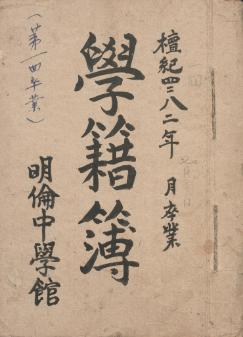 檀紀四二八二年 月卒業
學籍簿
(第一四卒業)
明倫中學館